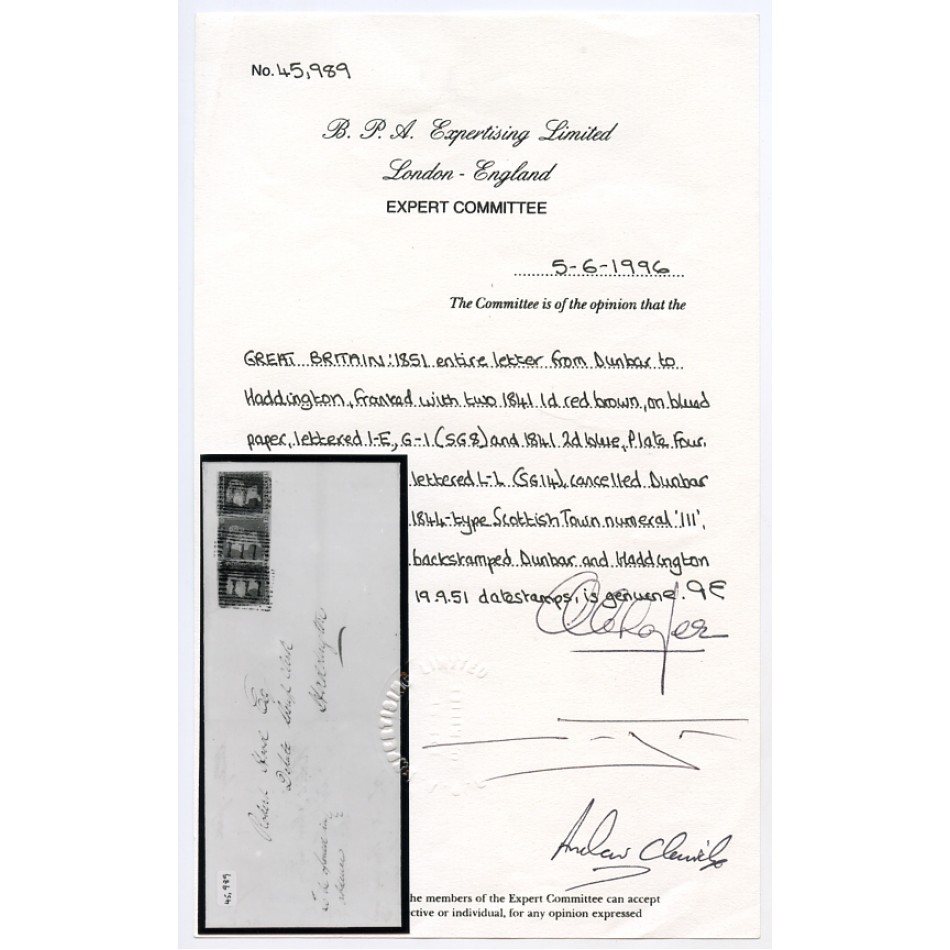 No. 45,989
B. P. A. Expertising Limited
London - England
EXPERT COMMITTEE
5-6-1996
The Committee is of the opinion that the
GREAT BRITAIN: 1851 entire letter from Dunbar to
Haddington, franked with two 1841 1d red brown, on blued
paper, lettered I-E, G-I (SG8) and 1841 2d blue, Plate Four
lettered L-L (SG14), cancelled Dunbar
1844-type Scottish Town numeral '111',
backstamped Dunbar and Haddington
19.9.51 datestamps, is genuine. 9E
LIMITED
Robert
Esq
Haddington
to be opened in
absence
45,989
he members of the Expert Committee can accept
ctive or individual, for any opinion expressed